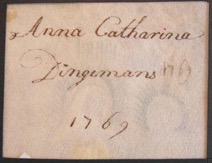 Anna Catharina
Dingemans
1769